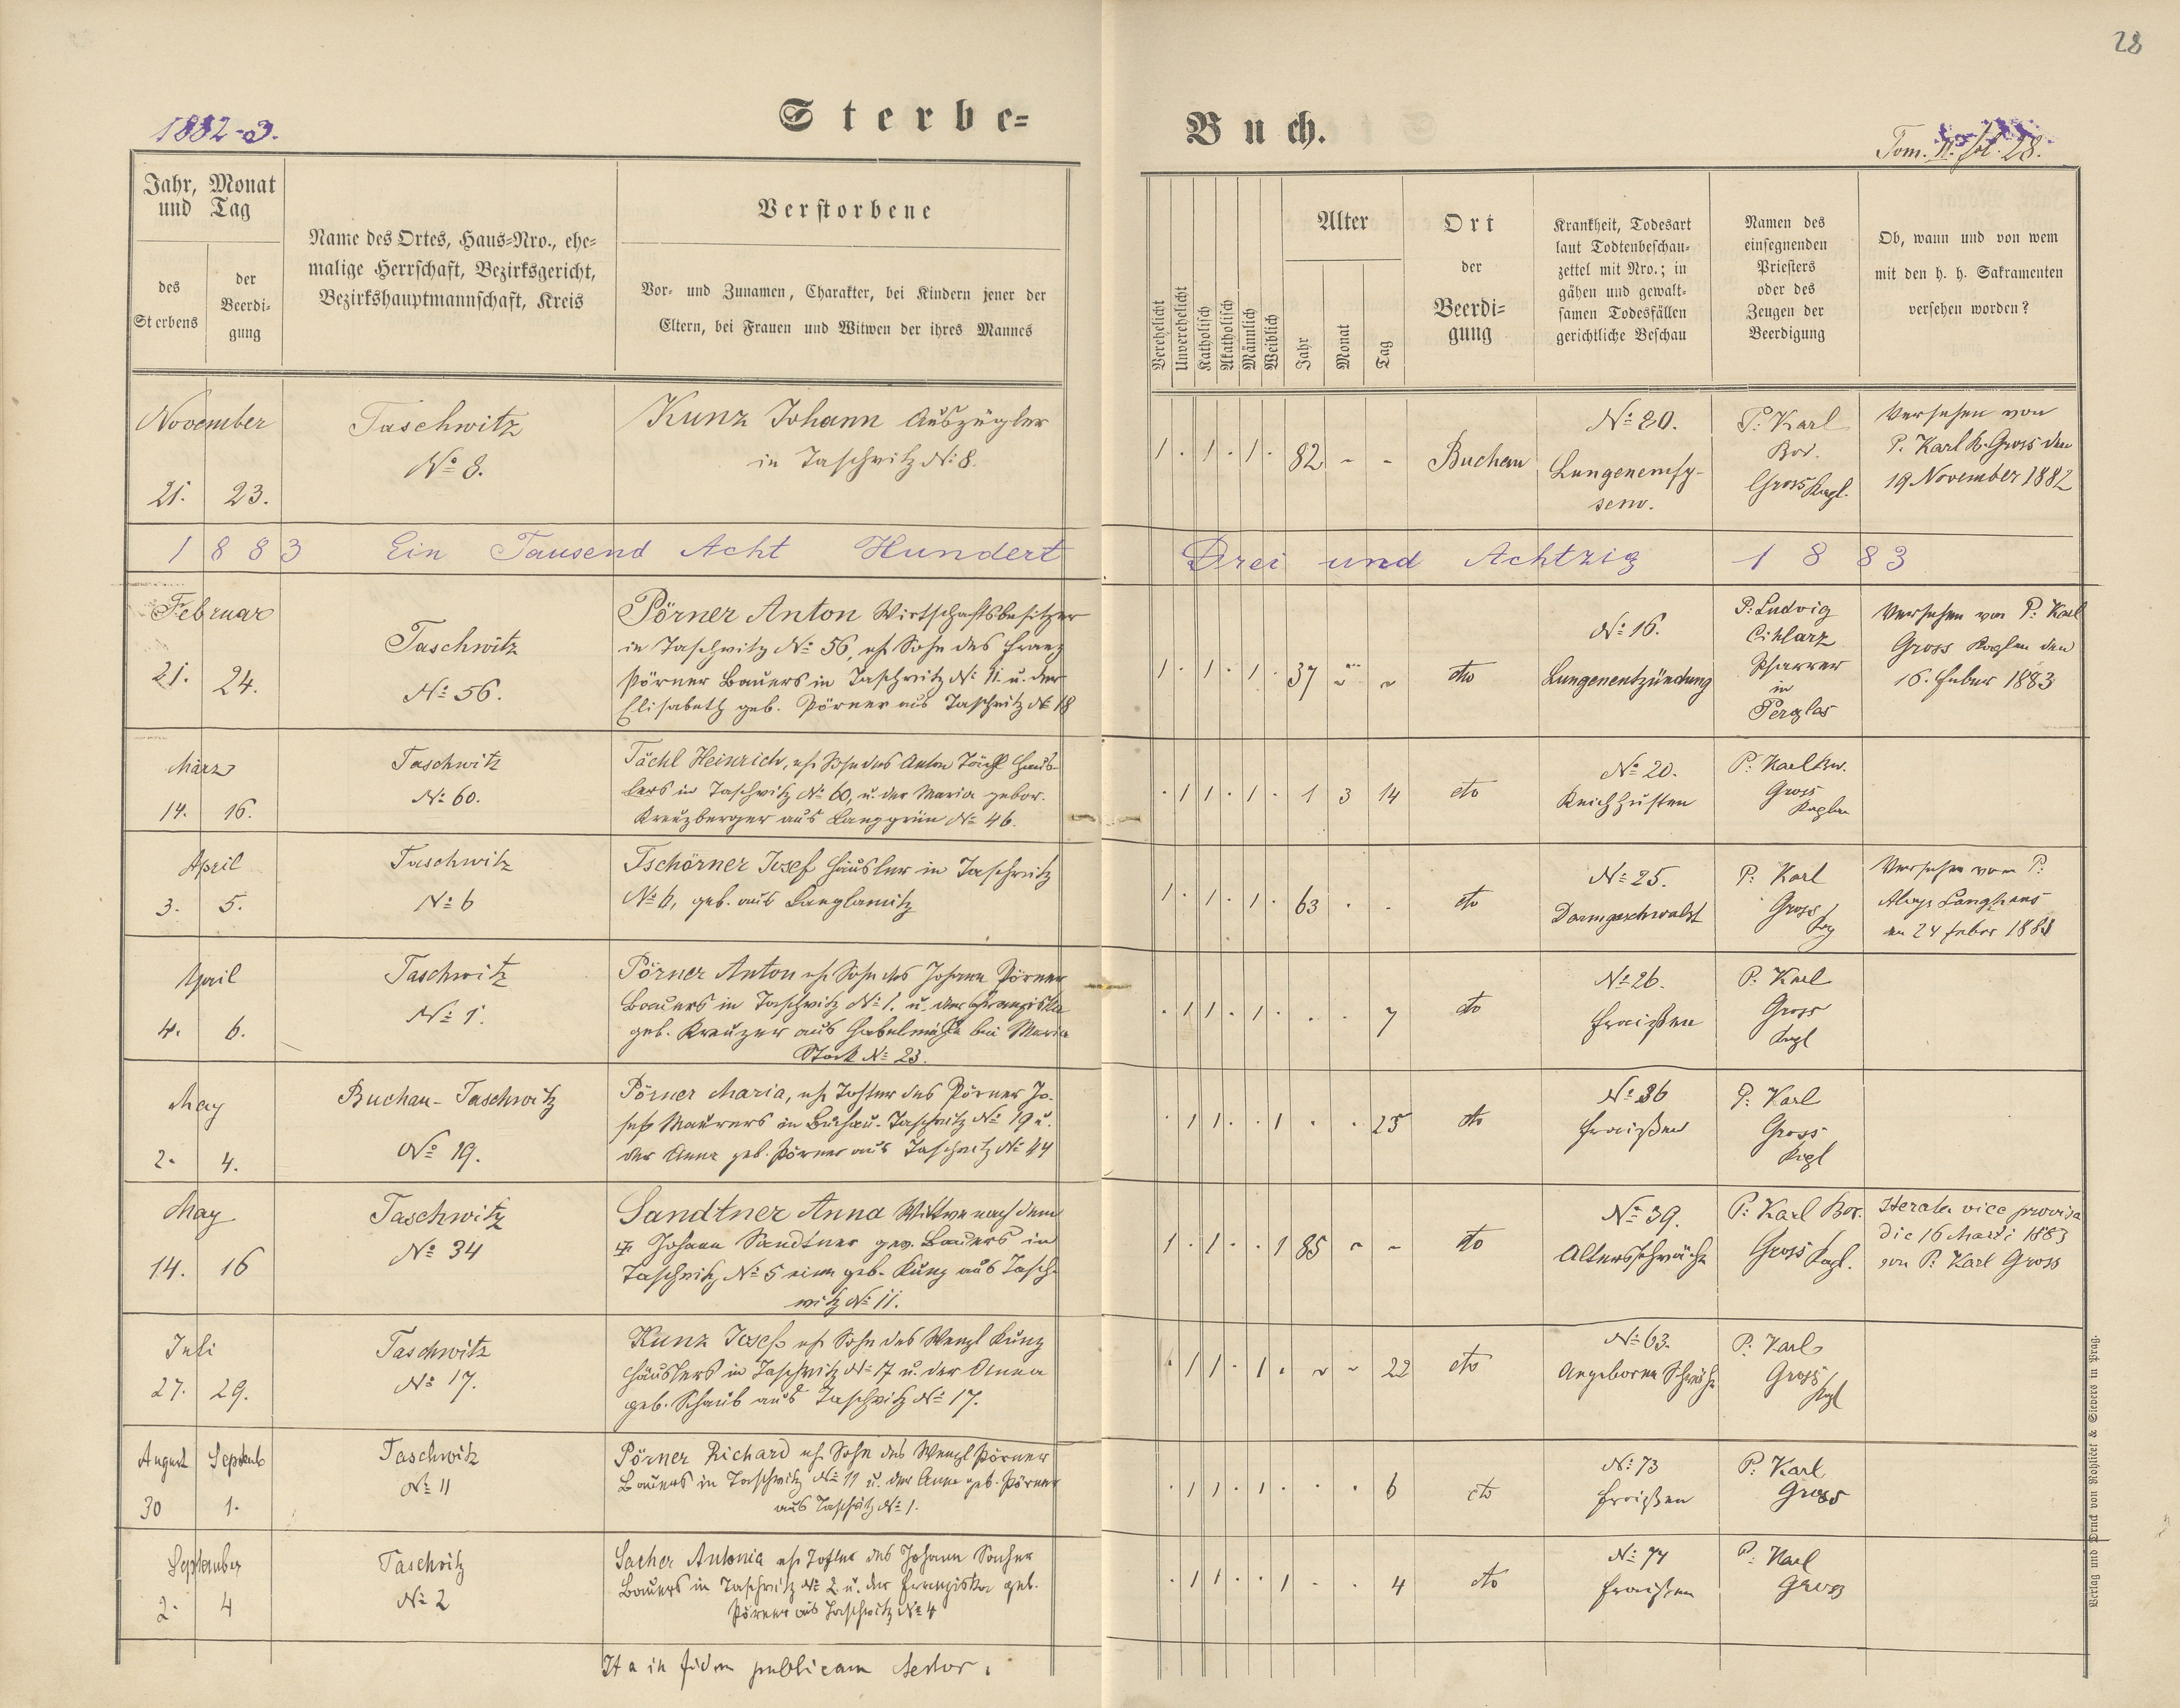 28
Sterbe=
Buch.
1882-3.
Tom. II. fol. 28.
Jahr, Monat
und Tag
des
Sterbens
der
Beerdi=
gung
Name des Ortes, Haus=Nro., ehe=
malige Herrschaft, Bezirksgericht,
Bezirkshauptmannschaft, Kreis
Verstorbene
Vor= und Zunamen, Charakter, bei Kindern jener der
Eltern, bei Frauen und Witwen der ihres Mannes
Verehelicht
Unverehelicht
Katholisch
Akatholisch
Männlich
Weiblich
Alter
Jahr
Monat
Tag
Ort
der
Beerdi=
gung
Krankheit, Todesart
laut Todtenbeschau=
zettel mit Nro.; in
gähen und gewalt=
samen Todesfällen
gerichtliche Beschau
Namen des
einsegnenden
Priesters
oder des
Zeugen der
Beerdigung
Ob, wann und von wem
mit den h. h. Sakramenten
versehen worden?
November
21. 23.
Taschwitz
No 8.
Kunz Johann Auszügler
in Taschwitz No 8.
1 . 1 . 1 . 82 - -
Buchau
No 80.
Lungenemfy-
sem.
P. Karl
Bor.
Gross Kapl.
Versehen von
P. Karl B. Gross den
19 November 1882
1883 Ein Tausend Acht Hundert Drei und Achtzig 1883
Februar
21. 24.
Taschwitz
No 56.
Pörner Anton Wirtschaftsbesitzer
in Taschwitz No 56, ehl. Sohn des Franz
Pörner Bauers in Taschwitz No 11. u. der
Elisabeth geb. Pörner aus Taschwitz No 18
1 . 1 . 1 . 37 - -
dto
No 16.
Lungenentzündung
P: Ludvig
Cihlarz
Pfarrer
in
Perglas
Versehen von P: Karl
Gross Kaplan den
16. Feber 1883
März
14. 16.
Taschwitz
No 60.
Tächl Heinrich, ehl. Sohn des Anton Tächl Häus-
lers in Taschwitz No 60, u. der Maria gebor.
Kreuzberger aus Langgrün No 46.
. 1 1 . 1 . 1 3 14
dto
No 20.
Keichhusten
P: Karl Bor.
Gross
Kaplan
April
3. 5.
Taschwitz
No 6
Tschörner Josef Häusler in Taschwitz
No 6, geb. aus Langlamitz
1 . 1 . 1 . 63 . .
dto
No 25.
Darmgeschwulst
P: Karl
Gross
Versehen vom P:
Aloys Langhans
am 24 Feber 1883
April
4. 6.
Taschwitz
No 1.
Pörner Anton ehl. Sohn des Johann Pörner
Bauers in Taschwitz No 1. u. der Franziska
geb. Kreuzer aus Gabelmühle bei Maria
Stock No 23.
. 1 1 . 1 . . . 7
dto
No 26.
Fraißen
P: Karl
Gross
Kapl
May
2. 4.
Buchau-Taschwitz
No 19.
Pörner Maria, ehl. Tochter des Pörner Jo-
sefs Maurers in Buchau-Taschwitz No 19 u.
der Anna geb. Pörner aus Taschwitz No 44
. 1 1 . . 1 . . 25
dto
No 36
Fraißen
P: Karl
Gross
Kapl
May
14. 16
Taschwitz
No 34
Sandtner Anna Wittwe nach dem
Johann Sandtner gew. Bauers in
Taschwitz No 5 eine geb. Kunz aus Tasch-
witz No 11.
1 . 1 . . 1 85 - -
dto
No 39.
Altersschwäche
P: Karl Bor.
Gross Kapl.
Iterata vice provisa
die 16 Marti 1883
von P. Karl Gross
Juli
27. 29.
Taschwitz
No 17.
Kunz Josef ehl. Sohn des Wenzl Kunz
Häuslers in Taschwitz No 17 u. der Anna
geb. Schaub aus Taschwitz No 17.
. 1 1 . 1 . - - 22
dto
No 63.
Angeborne Schwäche
P: Karl
Gross
Kapl
August Septemb
30 1.
Taschwitz
No 11
Pörner Richard ehl. Sohn des Wenzl Pörner
Bauers in Taschwitz No 11 u. der Anna geb. Pörner
aus Taschwitz No 1.
. 1 1 . 1 . . . 6
dto
No 73
Fraißen
P: Karl
Gross
September
2. 4
Taschwitz
No 2
Sacher Antonia ehl. Tochter des Johann Sacher
Bauers in Taschwitz No 2 u. der Franziska geb.
Pörner aus Taschwitz No 4
. 1 1 . . 1 . . 4
dto
No 74
Fraißen
P: Karl
Gross
Ita in fidem publicam testor.
Verlag und Druck von Rohliček & Sievers in Prag.